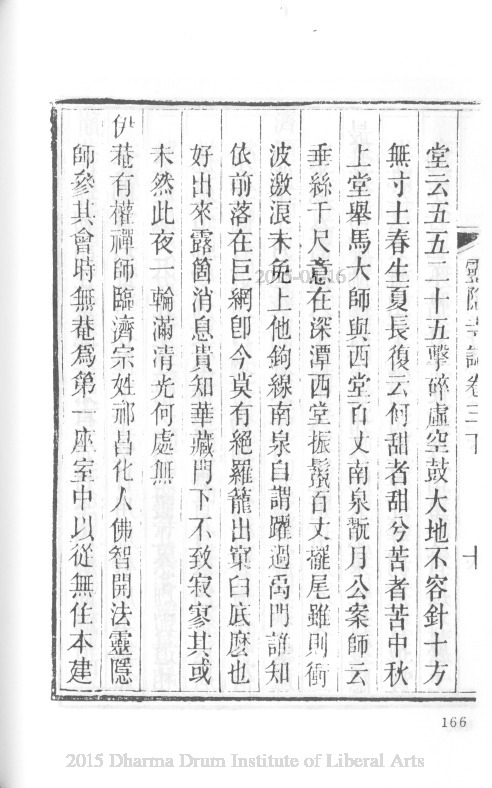 靈隱寺誌卷三下 十
堂云五五二十五擊碎虛空鼓大地不容針十方
無寸土春生夏長復云何甜者甜兮苦者苦中秋
上堂舉馬大師與西堂百丈南泉翫月公案師云
垂絲千尺意在深潭西堂振鬣百丈擺尾雖則衝
波激浪未免上他鉤線南泉自謂躍過禹門誰知
依前落在巨網卽今莫有絕羅籠出窠臼底麼也
好出來露箇消息貴知華藏門下不致寂寥其或
未然此夜一輪滿清光何處無
伊菴有權禪師臨濟宗姓祁昌化人佛智開法靈隱
師參其會時無菴爲第一座室中以從無住本建
166
2015 Dharma Drum Institute of Liberal Arts